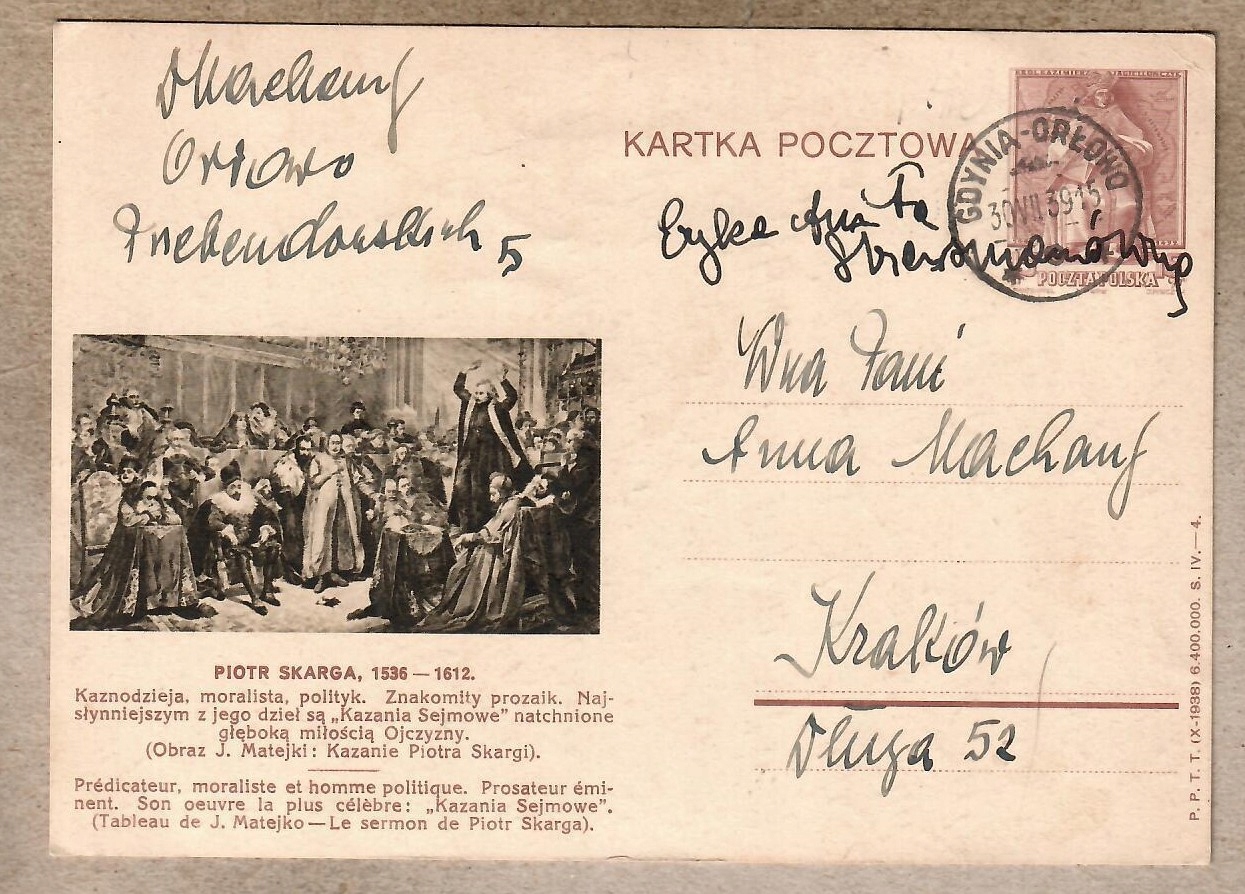 Machauf
Orłowo
5
KARTKA POCZTOWA
GDYNIA-ORŁOWO
30VII.39 15
POCZTA POLSKA
Wna Pani
Anna Machauf
Kraków
Długa 52
PIOTR SKARGA, 1536 — 1612.
Kaznodzieja, moralista, polityk. Znakomity prozaik. Naj-
słynniejszym z jego dzieł są „Kazania Sejmowe” natchnione
głęboką miłością Ojczyzny.
(Obraz J. Matejki: Kazanie Piotra Skargi).
Prédicateur, moraliste et homme politique. Prosateur émi-
nent. Son oeuvre la plus célèbre: „Kazania Sejmowe”.
(Tableau de J. Matejko — Le sermon de Piotr Skarga).
P. P. T. T. (X-1938) 6.400.000. S. IV. — 4.